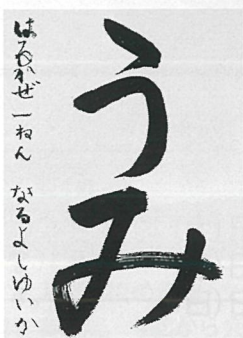 うみ
はるかぜ一ねん なるよしゆいか